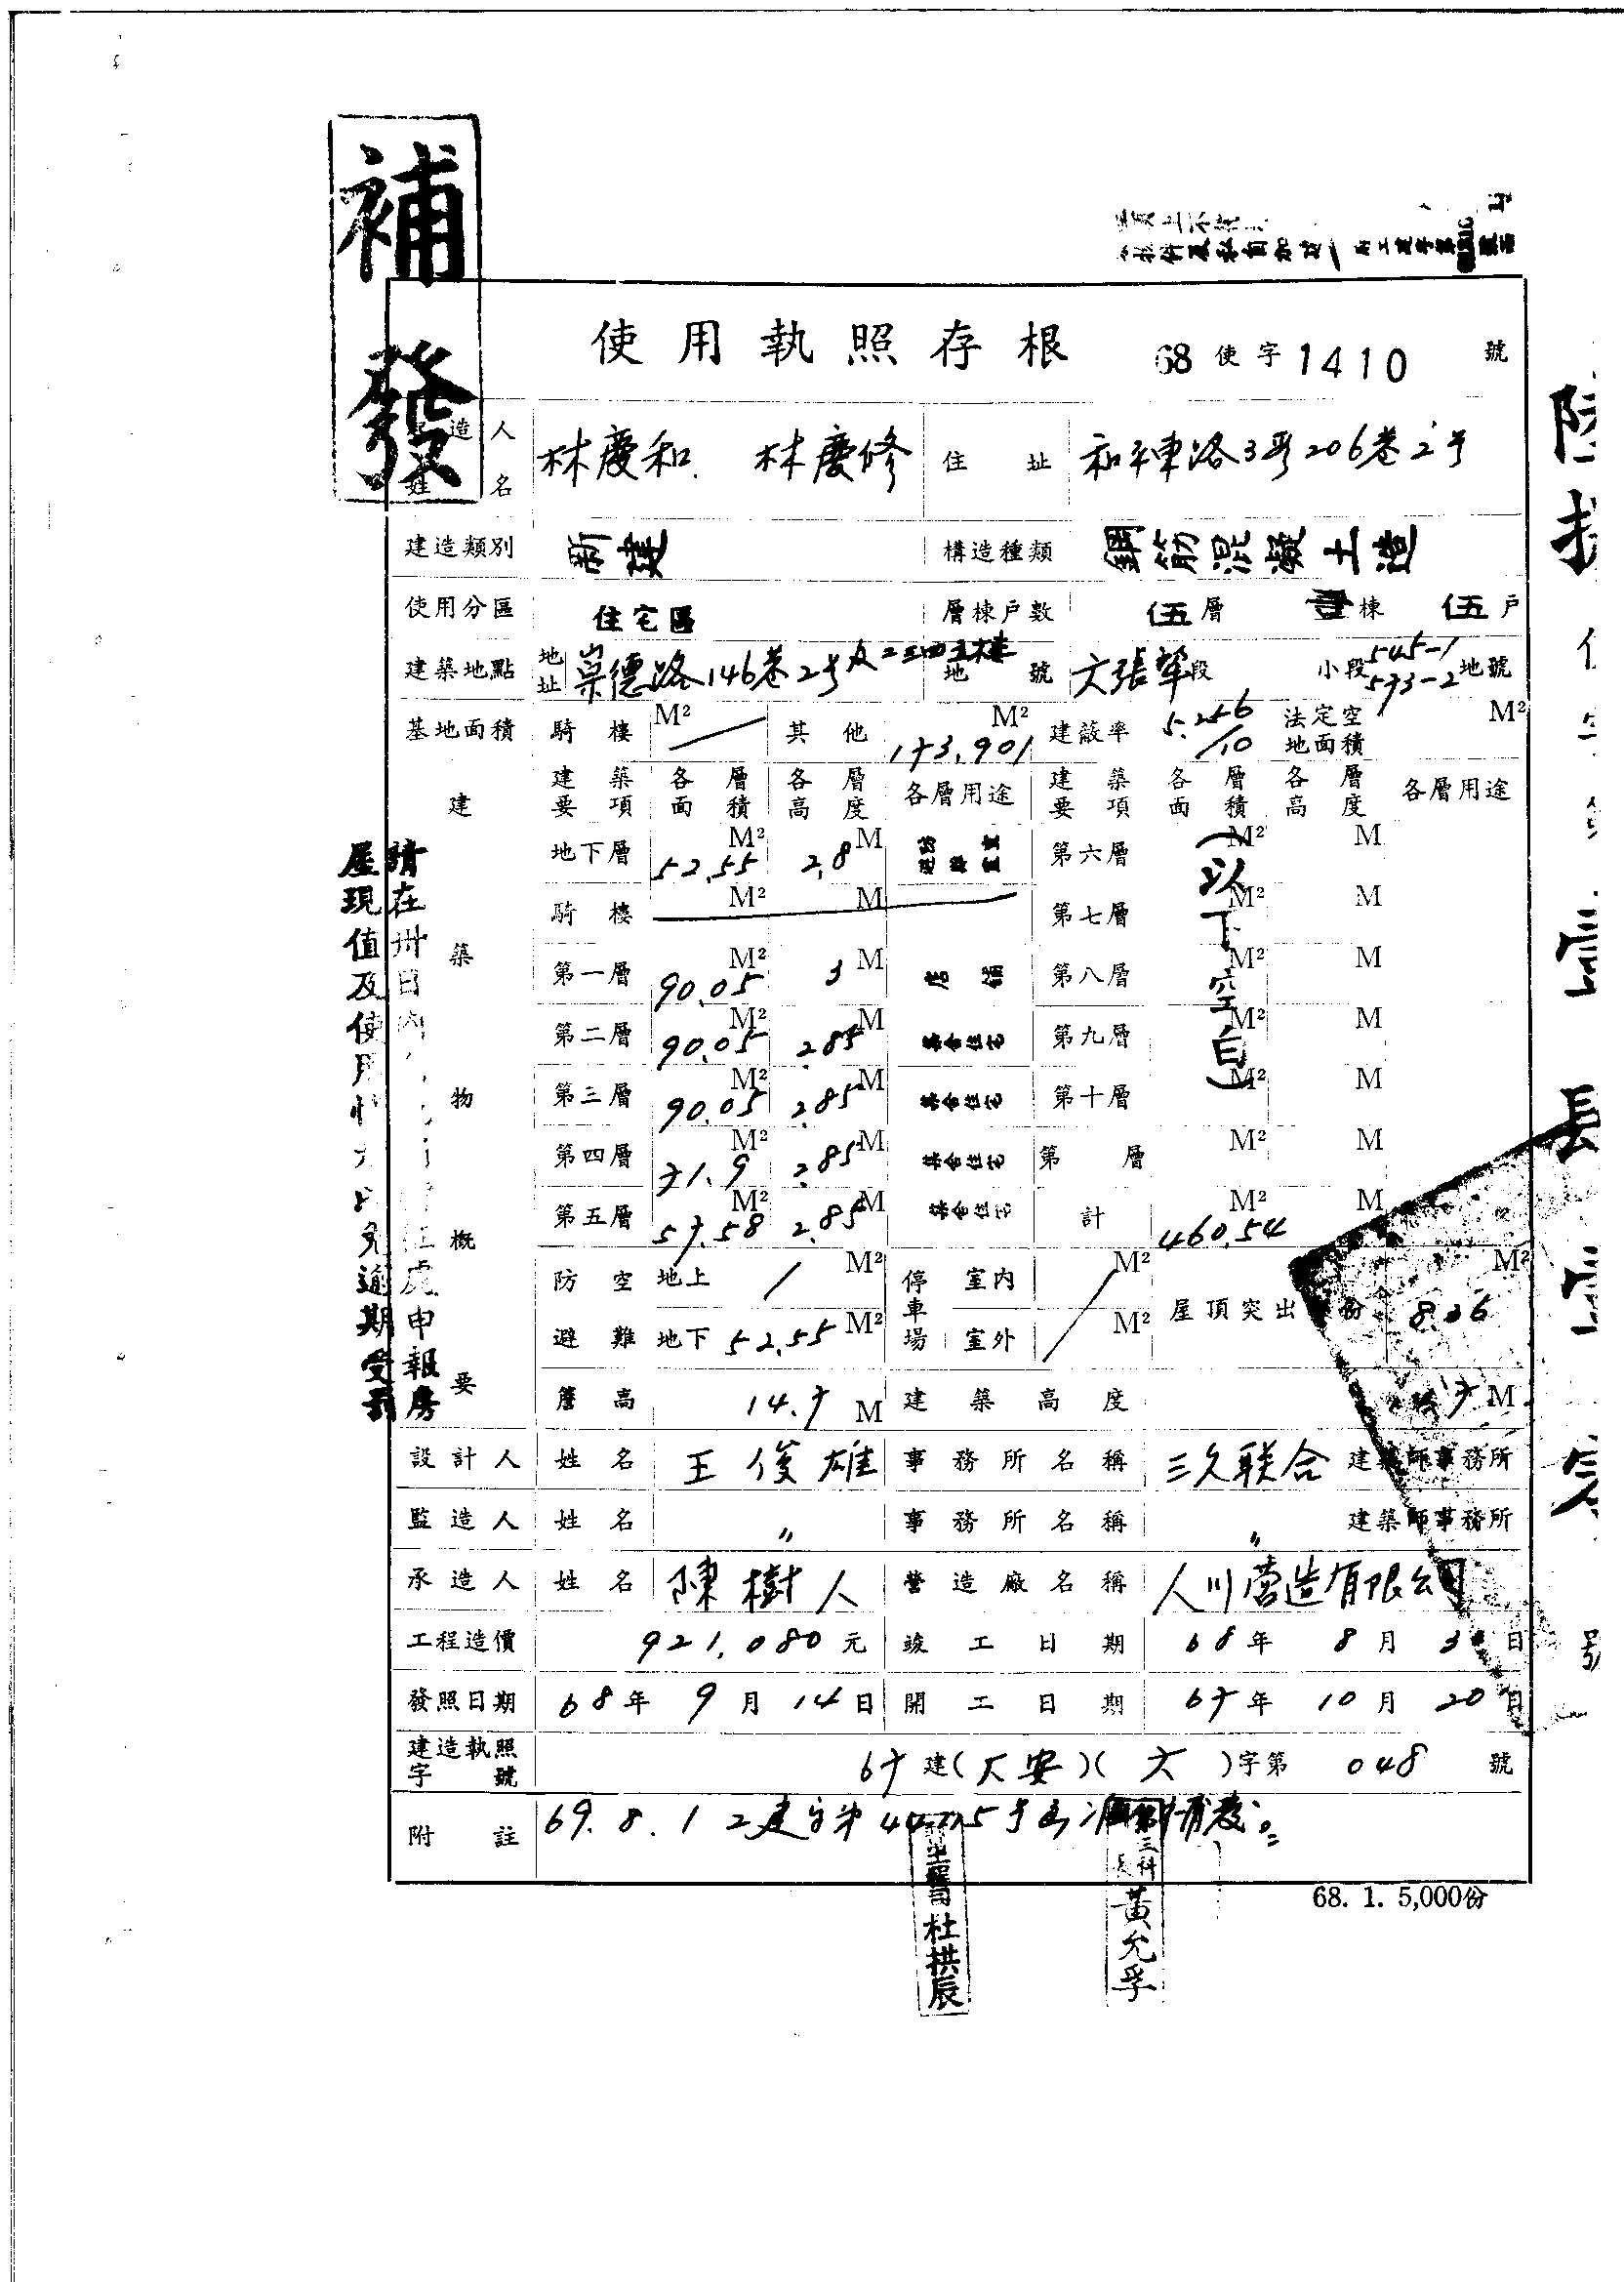 補發
使用執照存根 68 使字 1410 號
造人姓名 林慶和. 林慶修 住址 和平東路3段206巷2号
建造類別 新建 構造種類 鋼筋混凝土造
使用分區 住宅區 層棟戶數 伍層 壹棟 伍戶
建築地點 地址 崇德路146巷2号及二三四五樓 地號 六張犂段 小段 545-1 573-2 地號
基地面積 騎樓 M² / 其他 M² 173.901 建蔽率 5.256/10 法定空地面積 M²
建築物概要
建築要項 各層面積 各層高度 各層用途 建築要項 各層面積 各層高度 各層用途
地下層 52.55 M² 2.8 M 第六層 M² M
騎樓 M² M 第七層 M² M
第一層 90.05 M² 3 M 店舖 第八層 M² M
第二層 90.05 M² 2.85 M 集合住宅 第九層 M² M
第三層 90.05 M² 2.85 M 集合住宅 第十層 M² M
第四層 71.9 M² 2.85 M 集合住宅 第 層 M² M
第五層 57.58 M² 2.85 M 集合住宅 計 460.54 M² M
(以下空白)
防空避難 地上 / M² 停車場 室內 M² 屋頂突出 份 8.06 M²
地下 52.55 M² 室外 / M²
簷高 14.7 M 建築高度 7 M
設計人 姓名 王俊雄 事務所名稱 三久联合 建築師事務所
監造人 姓名 〃 事務所名稱 〃 建築師事務所
承造人 姓名 陳樹人 營造廠名稱 人川營造有限公司
工程造價 921,080元 竣工日期 68年 8月 3 日
發照日期 68年 9月 14日 開工日期 67年 10月 20日
建造執照字號 67 建(大安)(六)字第 048 號
附註 69.8.12建字第
68. 1. 5,000份
杜拱辰
三科
黃允孚
請在卅日內
處申報房
屋現值及使用
逾期受罰
長
號